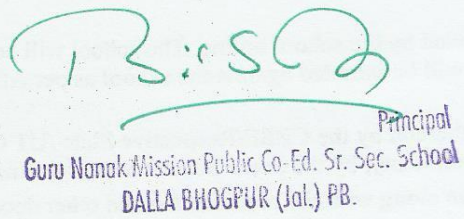 Principal
Guru Nanak Mission Public Co-Ed. Sr. Sec. School
DALLA BHOGPUR (Jal.) PB.